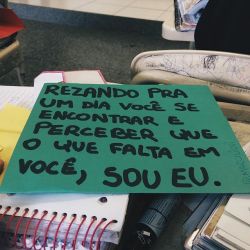 REZANDO PRA
UM DIA VOCÊ SE
ENCONTRAR E
PERCEBER QUE
O QUE FALTA EM
VOCÊ, SOU EU.